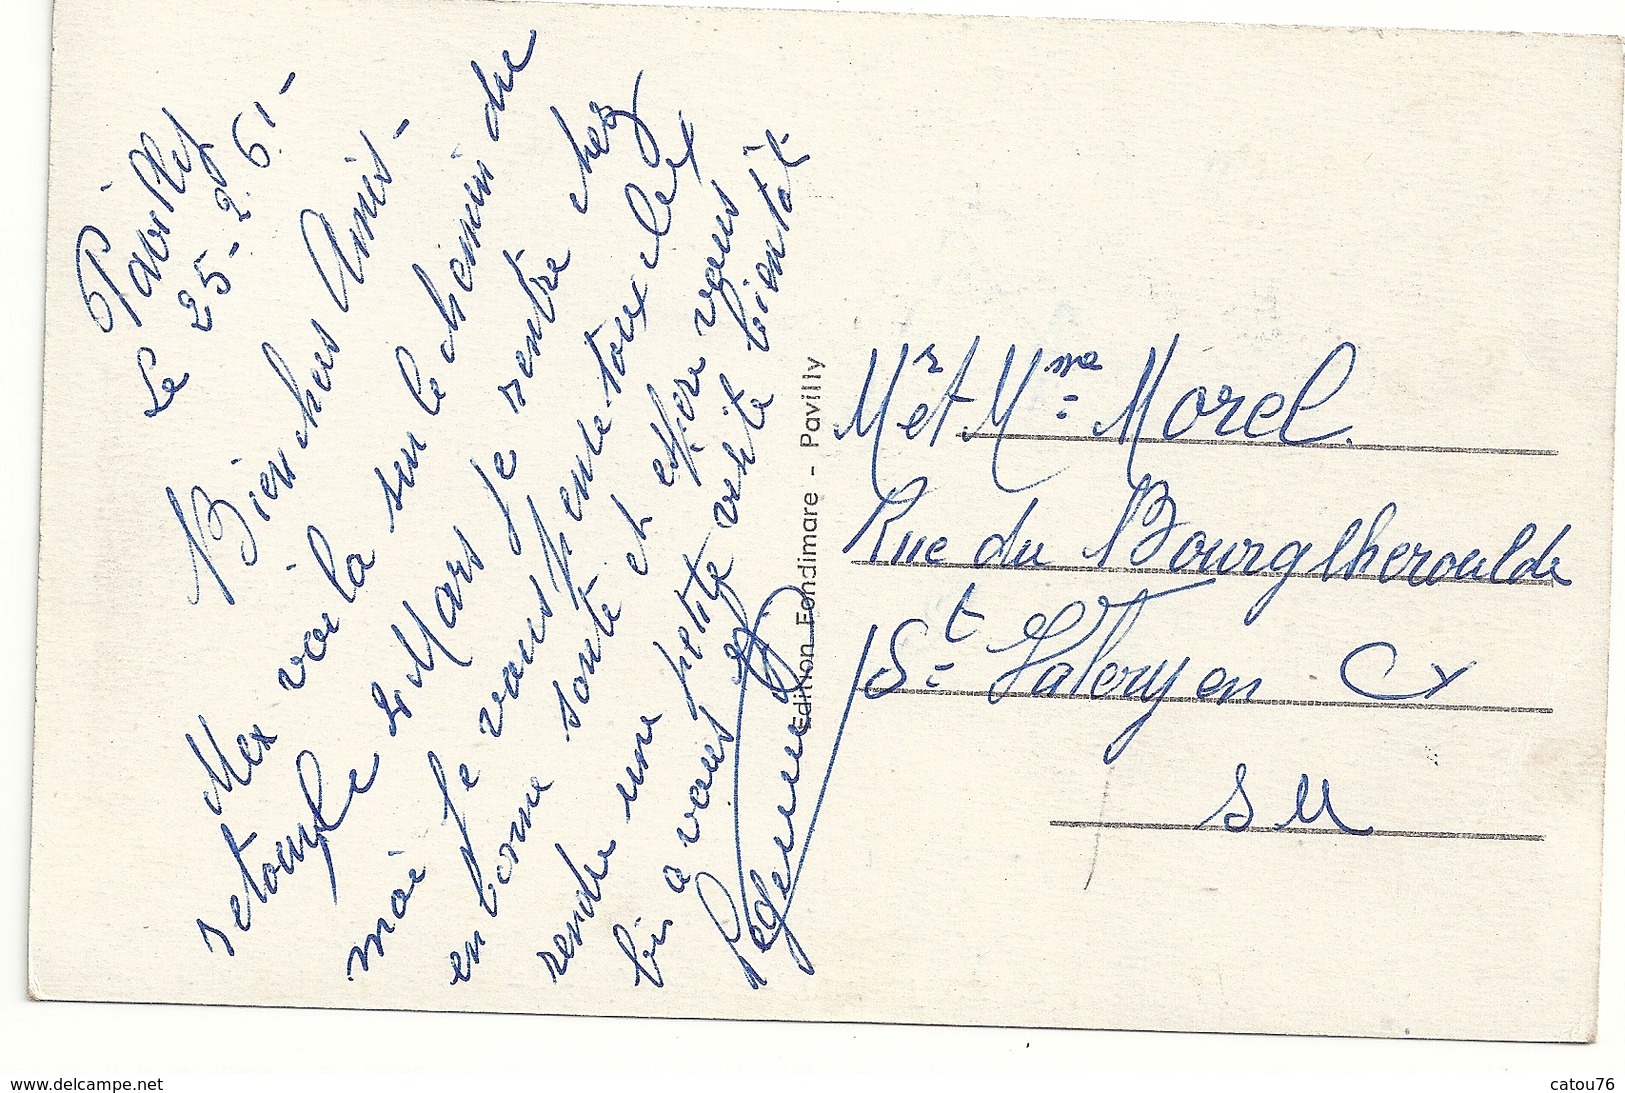 Pavilly
Le 25-2.61-
Bien chers Amis-
Me voila sur le chemin du
retour le 2 Mars je rentre chez
moi je vous
en bonne santé et espère vous
rendre une petite visite bientôt
a vous
Edition Fondimare - Pavilly
Mr et Mme Morel.
Rue du Bourgtheroulde
St Valery en Cx
S M
www.delcampe.net
catou76